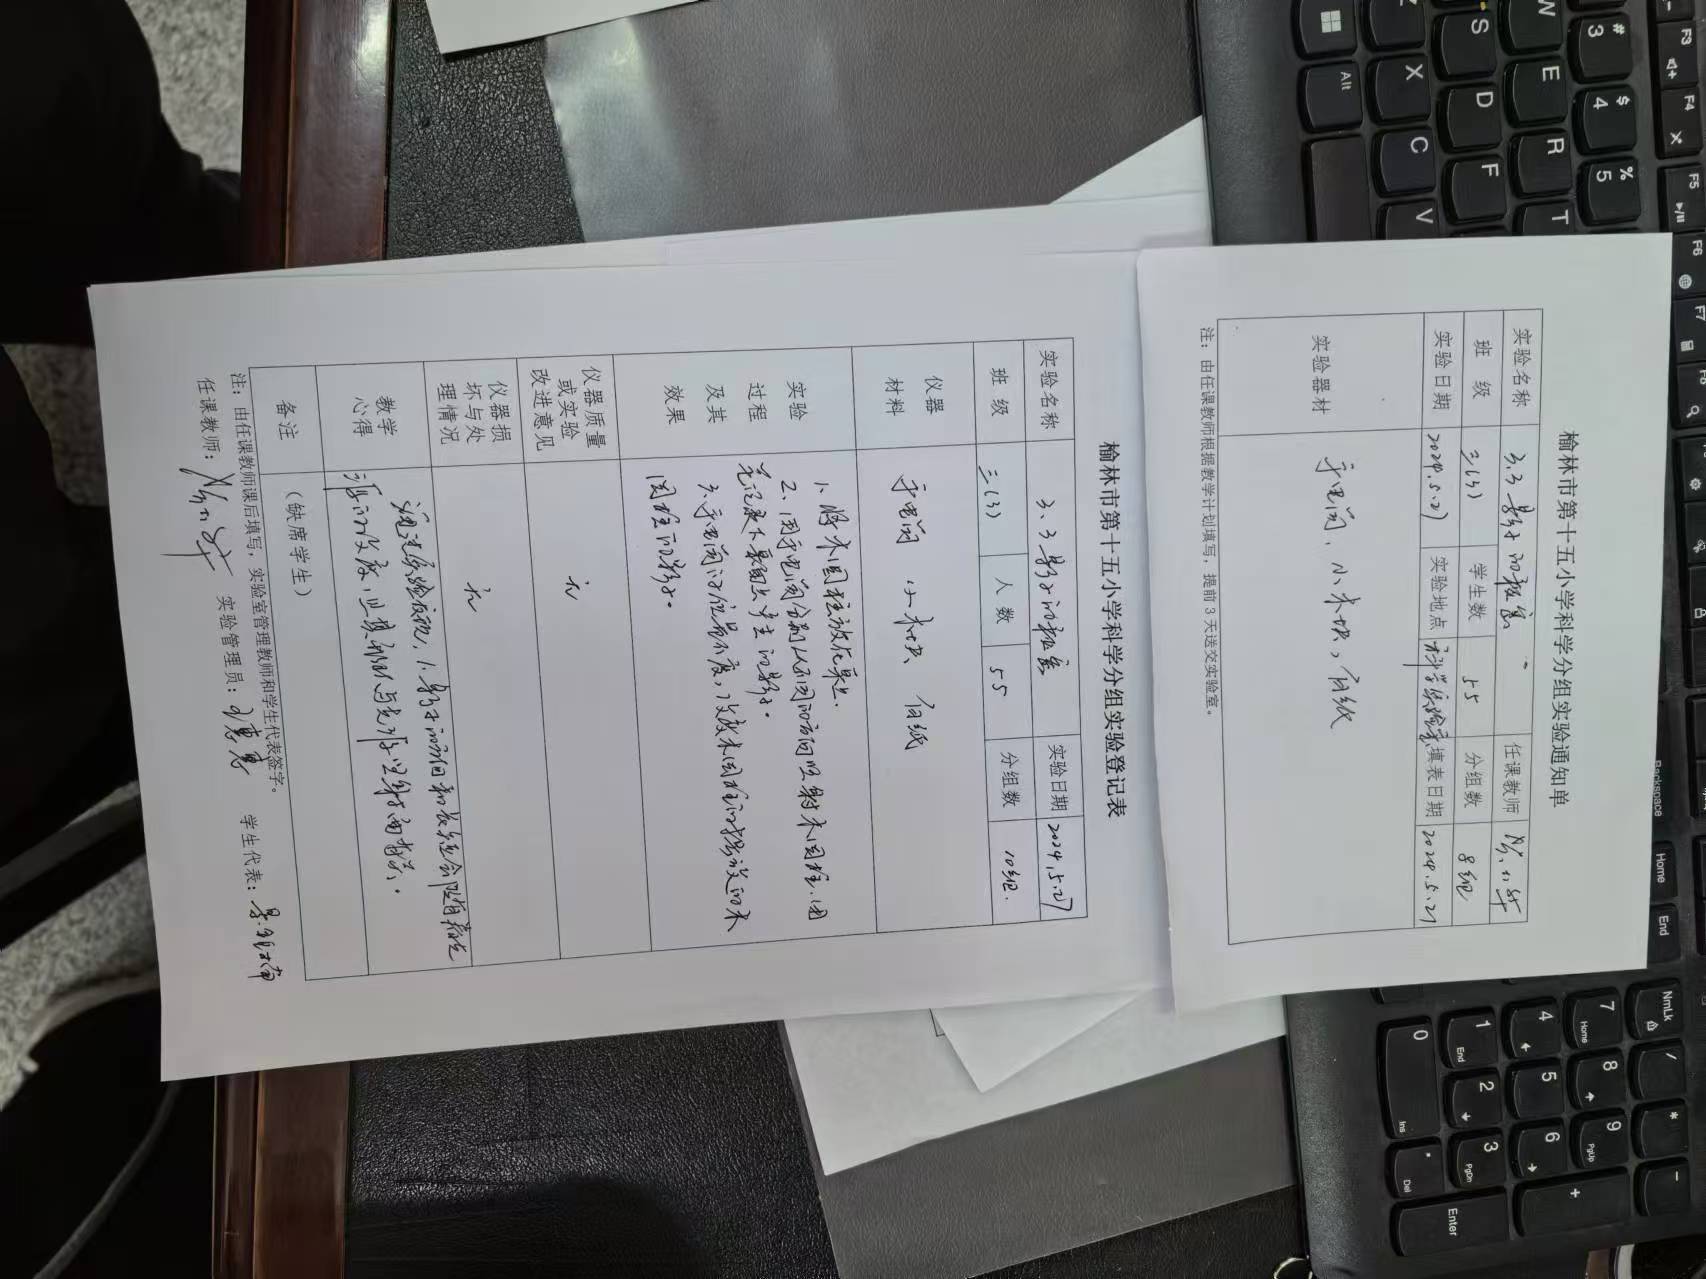 榆林市第十五小学科学分组实验通知单
实验名称 3.3影子的秘密 任课教师
班 级 三(3) 学生数 55 分组数 8组
实验日期 2024.5.27 实验地点 科学实验室 填表日期 2024.5.21
实验器材 手电筒、小木块、白纸
注：由任课教师根据教学计划填写，提前3天送交实验室。
榆林市第十五小学科学分组实验登记表
实验名称 3.3影子的秘密 实验日期 2024.5.27
班 级 三(3) 人数 55 分组数 10组.
仪器
材料
手电筒 小木块、白纸
实验
过程
及其
效果
1.将木圆柱放在桌上.
2.用手电筒分别从不同的方向照射木圆柱.用
笔记录下桌面上产生的影子。
3.手电筒的位置不变,改变木圆柱的摆放的木
圆柱的影子。
仪器质量
或实验
改进意见
无
仪器损
坏与处
理情况
无
教学
心得
通过实验发现,1.影子的方向和长短会随着光
源的改变,
备注
（缺席学生）
注：由任课教师课后填写，实验室管理教师和学生代表签字。
任课教师： 实验管理员： 学生代表：
W
S
E
D
R
F
T
X
C
V
Alt
#
3
$
4
%
5
F3
F4
F5
F6
F7
F8
Backspace
Home
End
NmLk
/
*
-
7
Home
8
9
PgUp
4
5
6
+
1
End
2
3
PgDn
0
Ins
Del
Enter